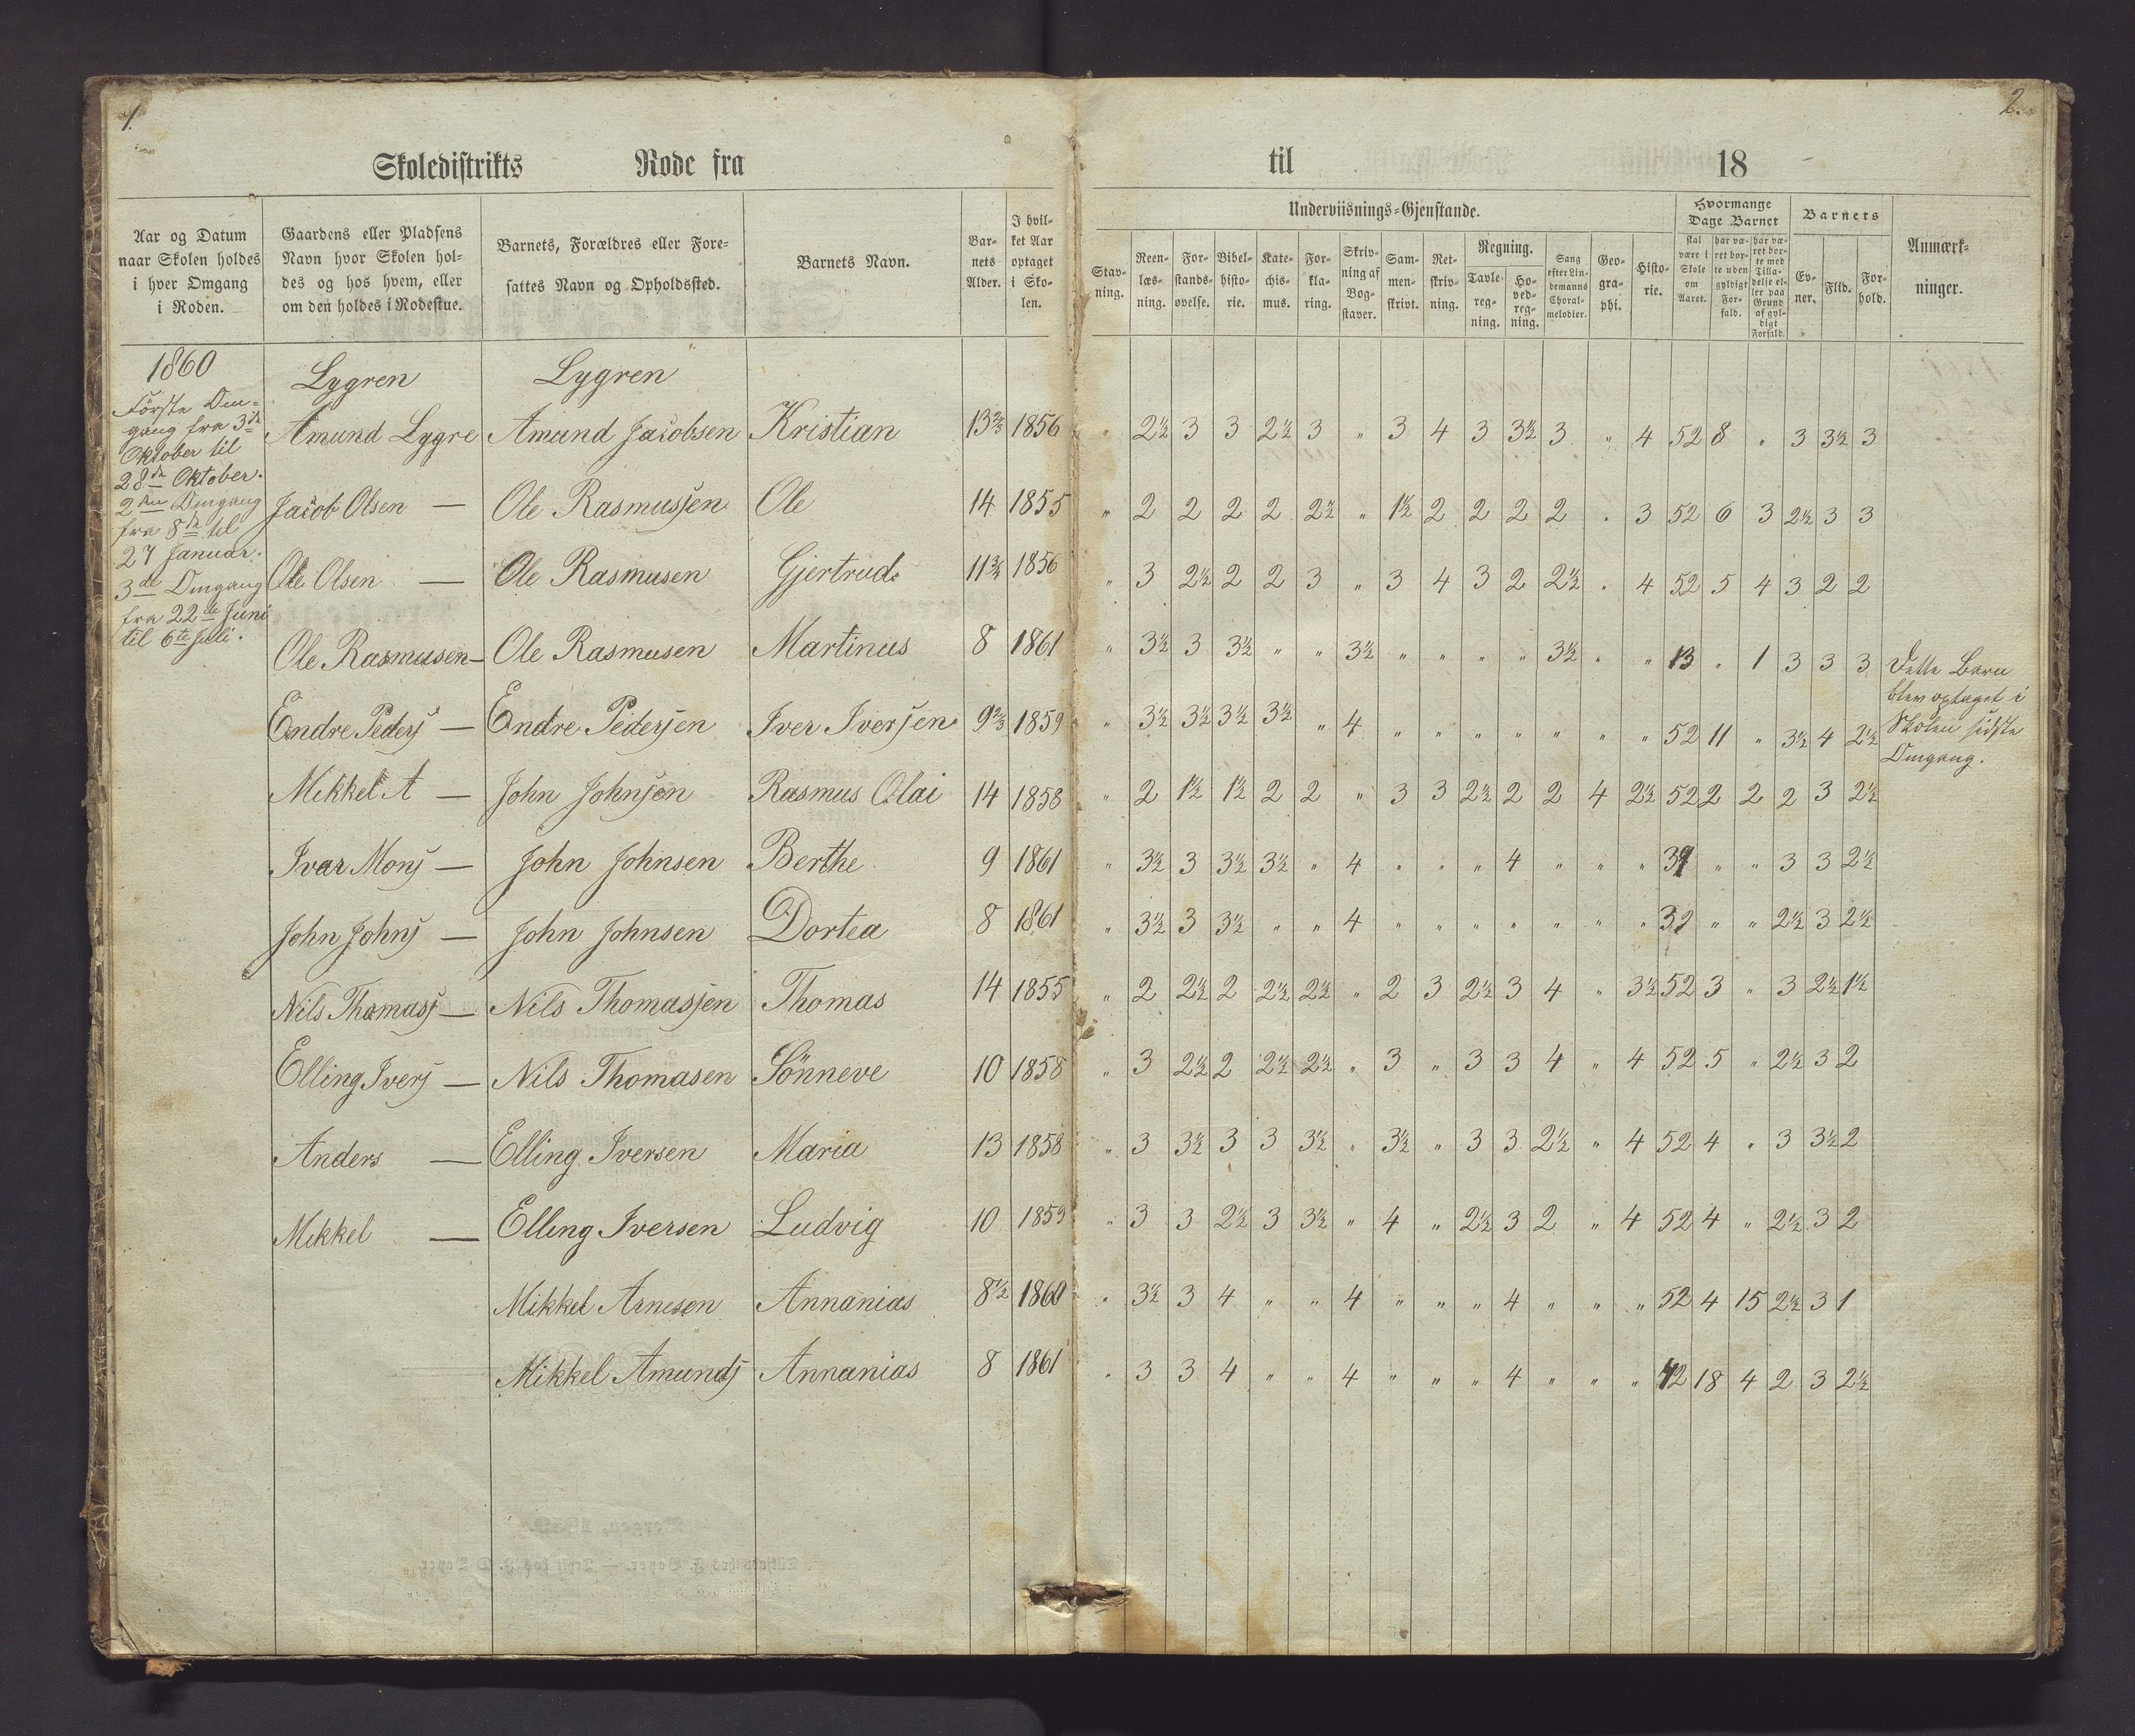 1.
2.
Skoledistrikts Rode fra til 18
Aar og Datum naar Skolen holdes i hver Omgang i Roden.
Gaardens eller Pladsens Navn hvor Skolen holdes og hos hvem, eller om den holdes i Rodestue.
Barnets, Forældres eller Foresattes Navn og Opholdssted.
Barnets Navn.
Barnets Alder.
I hvilket Aar optaget i Skolen.
Underviisnings-Gjenstande.
Stavning.
Reenlæsning.
Forstandsøvelse.
Bibelhistorie.
Katechismus.
Forklaring.
Skrivning af Bogstaver.
Sammenskrivt.
Retskrivning.
Regning.
Tavleregning.
Hovedregning.
Sang efter Lindemanns Choralmelodier.
Geographi.
Historie.
Hvormange Dage Barnet
skal være i Skole om Aaret.
har været borte uden gyldigt Forfald.
har været borte med Tilladelse eller paa Grund af gyldigt Forfald.
Barnets
Evner.
Flid.
Forhold.
Anmærkninger.
1860
Förste Omgang fra 3die Oktober til
28de Oktober.
2den Omgang
fra 8de til
27 Januar.
3die Omgang
fra 22de Juni
til 6te Juli.
Lygren Lygren
Amund Lygre Amund Jacobsen Kristian 13 2/3 1856 " 2½ 3 3 2½ 3 " 3 4 3 3½ 3 " 4 52 8 " 3 3½ 3
Jacob Olsen — Ole Rasmussen Ole 14 1855 " 2 2 2 2 2½ " 1½ 2 2 2 2 " 3 52 6 3 2½ 3 3
Ole Olsen — Ole Rasmusen Gjertrud 11¾ 1856 " 3 2½ 2 2 3 " 3 4 3 2 2½ " 4 52 5 4 3 2 2
Ole Rasmusen — Ole Rasmusen Martinus 8 1861 " 3½ 3 3½ " " 3½ " " " " 3½ " " 13 " 1 3 3 3
Dette Barn
blev optaget i
Skolen sidste
Omgang.
Endre Peders — Endre Pedersen Iver Iversen 9 2/3 1859 " 3½ 3½ 3½ 3½ " 4 " " " " " " " 52 11 " 3½ 4 2½
Mikkel A — John Johnsen Rasmus Olai 14 1858 " 2 1½ 1½ 2 2 " 3 3 2½ 2 2 4 2½ 52 2 2 2 3 2½
Ivar Mons — John Johnsen Berthe 9 1861 " 3½ 3 3½ 3½ " 4 " " " 4 " " " 39 " " 3 3 2½
John Johns — John Johnsen Dortea 8 1861 " 3½ 3 3½ " " 4 " " " " " " " 39 " " 2½ 3 2½
Nils Thomass — Nils Thomassen Thomas 14 1855 " 2 2½ 2 2½ 2½ " 2 3 2½ 3 4 " 3½ 52 3 " 3 2½ 1½
Elling Ivers — Nils Thomasen Sönneve 10 1858 " 3 2½ 2 2½ 2½ " 3 " 3 3 4 " 4 52 5 " 2½ 3 2
Anders — Elling Iversen Maria 13 1858 " 3 3½ 3 3 3½ " 3½ " 3 3 2½ " 4 52 4 " 3 3½ 2
Mikkel — Elling Iversen Ludvig 10 1859 " 3 3 2½ 3 3½ " 4 " 2½ 3 2 " 4 52 4 " 2½ 3 2
Mikkel Arnesen Annanias 8½ 1860 " 3½ 3 4 " " 4 " " " 4 " " " 52 4 15 2½ 3 1
Mikkel Amunds Annanias 8 1861 " 3 3 4 " " 4 " " " 4 " " " 42 18 4 2 3 2½